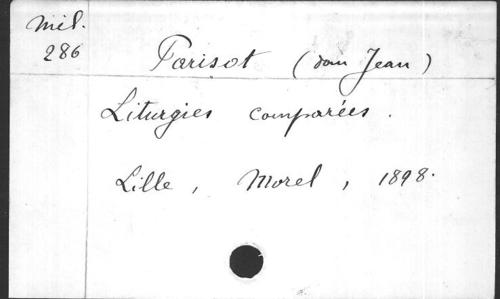 Mél.
286
Parisot (dom Jean)
Liturgies comparées.
Lille, Morel, 1898.